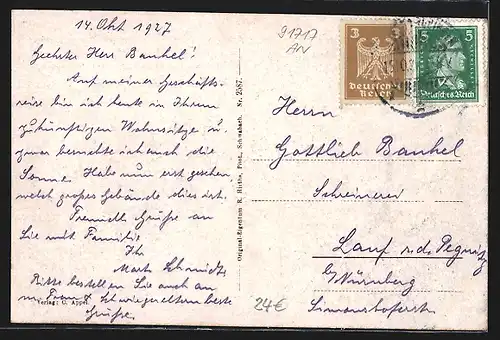 14. Okt 1927
Geehrter Herr Bankel!
Auf meiner Geschäfts-
reise bin ich heute in Ihrem
zukünftigen Wohnsitze u.
zwar benutzte ich auch die
Sonne. Habe nun erst gesehen
welch großes Gebäude dies ist.
Freundl Grüße an
Sie mit Familie,
Ihr
Mark Schmidt
Bitte bestellen Sie auch an
m Frau & Schwiegereltern beste
Grüße.
Verlag: C. Appel
Original-Eigentum R. Hirthe, Post, Schwabach. Nr. 2587.
91717
AN
3 3
Deutsches
Reich
5 5
Deutsches Reich
Herrn
Gottlieb Bankel
Schreinerei
Lauf a.d. Pegnitz
b/Nürnberg
Simonshoferstr
24€